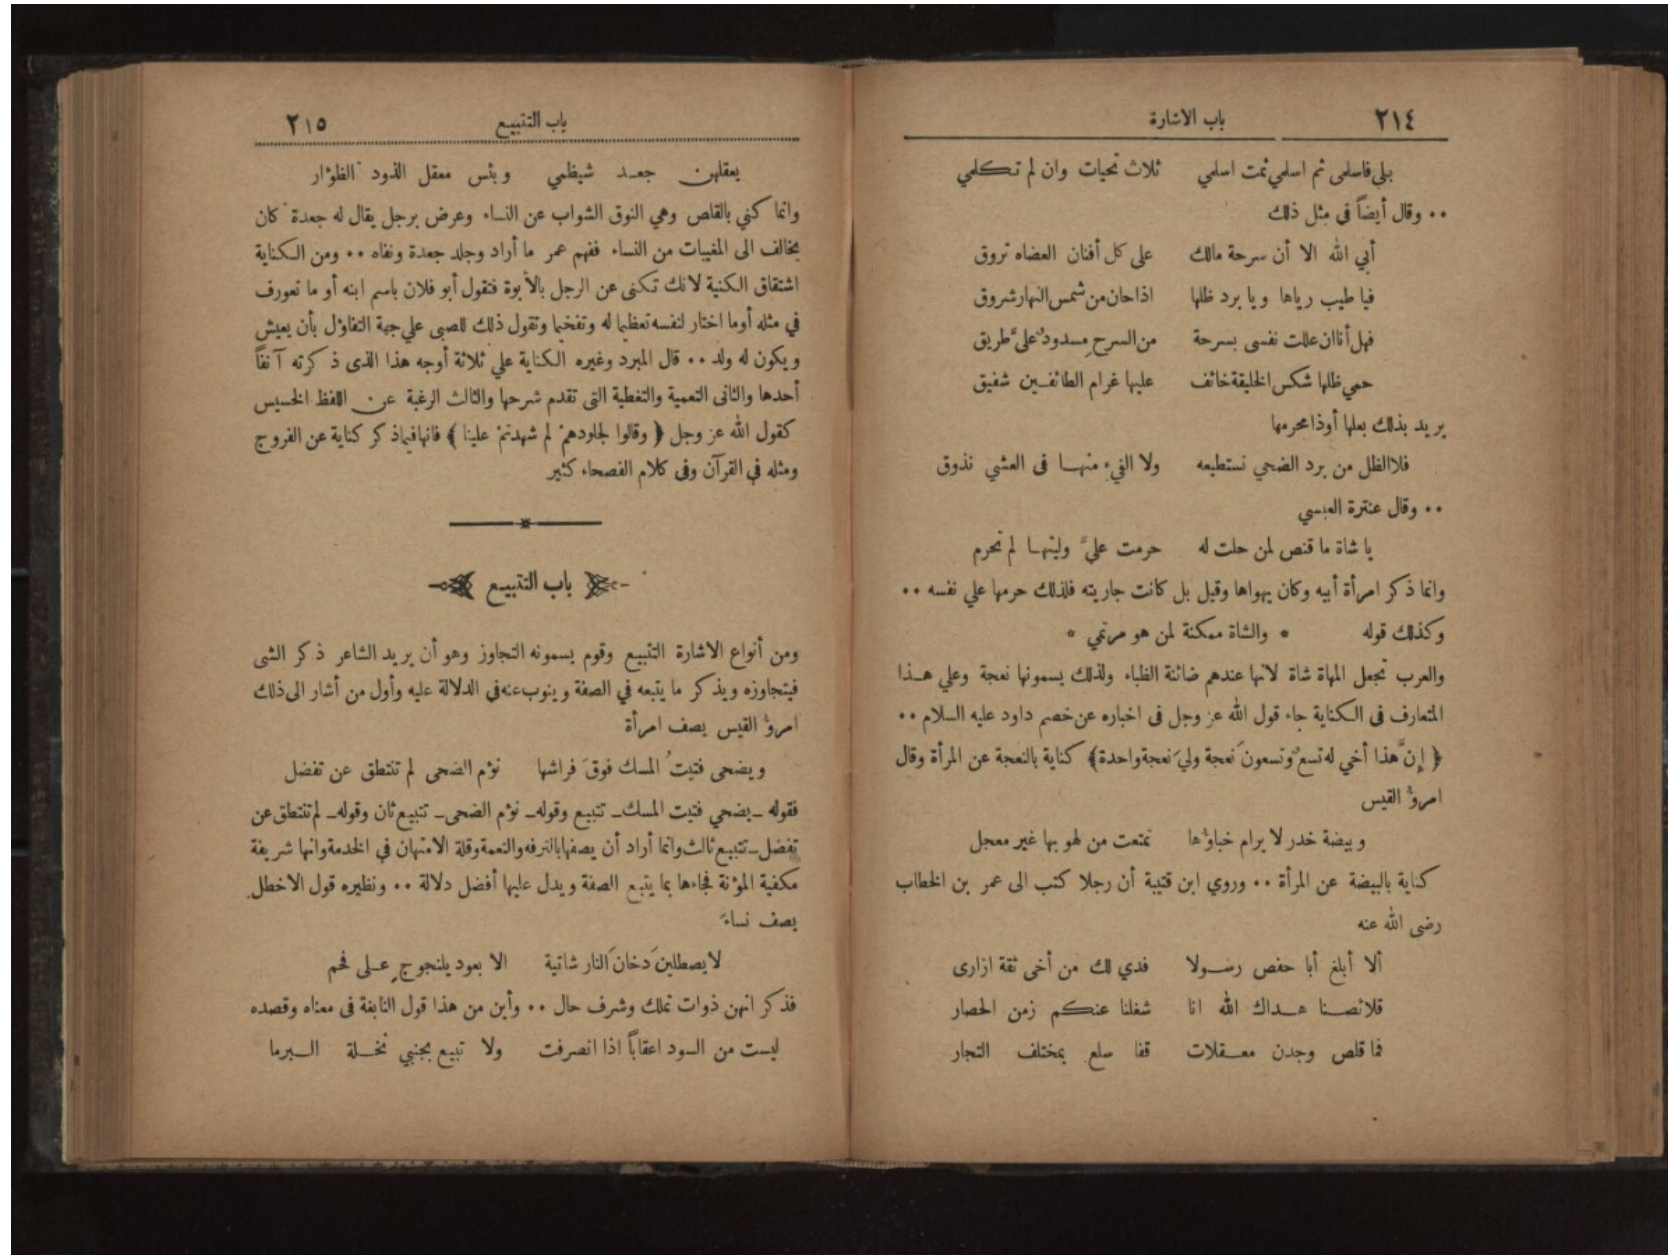 ٢١٤ باب الاشارة
بلى فاسلمى ثم اسلمي ثمت اسلمي ثلاث تحيات وان لم تكلمي
٠٠ وقال أيضاً في مثل ذلك
أبي الله الا أن سرحة مالك على كل أفنان العضاه تروق
فيا طيب رياها ويا برد ظلها اذا حان من شمس النهار شروق
فهل أنا ان عللت نفسى بسرحة من السرح مسدودٌ عليَّ طريق
حمي ظلها شكس الخليقة خائف عليها غرام الطائفين شفيق
يريد بذلك بعلها أوذا محرمها
فلا الظل من برد الضحي نستطيعه ولا الفيء منها فى العشي نذوق
٠٠ وقال عنترة العبسي
يا شاة ما قنص لمن حلت له حرمت عليَّ وليتها لم تحرم
وانما ذكر امرأة أبيه وكان يهواها وقيل بل كانت جاريته فلذلك حرمها علي نفسه ٠٠
وكذلك قوله * والشاة ممكنة لمن هو مرتمي *
والعرب تجعل المهاة شاة لانها عندهم ضائنة الظباء ولذلك يسمونها نعجة وعلي هذا
المتعارف فى الكناية جاء قول الله عز وجل فى اخباره عن خصم داود عليه السلام ٠٠
﴿ إنَّ هذا أخي له تسعٌ وتسعونَ نعجة وليَ نعجة واحدة﴾ كناية بالنعجة عن المرأة وقال
امرؤُ القيس
وبيضة خدر لا يرام خباؤها تمتعت من لهو بها غير معجل
كناية بالبيضة عن المرأة ٠٠ وروي ابن قتيبة أن رجلا كتب الى عمر بن الخطاب
رضى الله عنه
ألا أبلغ أبا حفص رسولا فدي لك من أخى ثقة ازارى
قلائصنا هداك الله انا شغلنا عنكم زمن الحصار
فما قلص وجدن معقلات قفا سلع بمختلف التجار
باب التتبيع ٢١٥
يعقلهن جعد شيظمي وبئس معقل الذود الظؤار
وانما كني بالقلص وهي النوق الشواب عن النساء وعرض برجل يقال له جعدة كان
يخالف الى المغيبات من النساء ففهم عمر ما أراد وجلد جعدة ونفاه ٠٠ ومن الكناية
اشتقاق الكنية لانك تكنى عن الرجل بالأبوة فتقول أبو فلان باسم ابنه أو ما تعورف
في مثله أوما اختار لنفسه تعظيما له وتفخيما وتقول ذلك للصبى علي جهة التفاؤل بأن يعيش
ويكون له ولد ٠٠ قال المبرد وغيره الكناية علي ثلاثة أوجه هذا الذى ذكرته آنفاً
أحدها والثانى التعمية والتغطية التى تقدم شرحها والثالث الرغبة عن اللفظ الخسيس
كقول الله عز وجل ﴿ وقالوا لجلودهمْ لم شهدتمْ علينا ﴾ فانها فيما ذكر كناية عن الفروج
ومثله في القرآن وفى كلام الفصحاء كثير
باب التتبيع
ومن أنواع الاشارة التتبيع وقوم يسمونه التجاوز وهو أن يريد الشاعر ذكر الشى
فيتجاوزه ويذكر ما يتبعه في الصفة وينوب عنه في الدلالة عليه وأول من أشار الى ذلك
امرؤُ القيس يصف امرأة
ويضحى فتيتُ المسك فوقَ فراشها نؤم الضحى لم تنتطق عن تفضل
فقوله ــ يضحي فتيت المسك ــ تتبيع وقوله ــ نؤم الضحى ــ تتبيع ثان وقوله ــ لم تنتطق عن
تفضل ــ تتبيع ثالث وانما أراد أن يصفها بالترفه والنعمة وقلة الامتهان في الخدمة وانها شريفة
مكفية المؤنة فجاءها بما يتبع الصفة ويدل عليها أفضل دلالة ٠٠ ونظيره قول الاخطل
يصف نساءً
لا يصطلينَ دخانَ النار شاتية الا بعود يلنجوج على فحم
فذكر انهن ذوات تملك وشرف حال ٠٠ وأين من هذا قول النابغة فى معناه وقصده
ليست من السود اعقاباً اذا انصرفت ولا تبيع بجنبي نخلة البرما